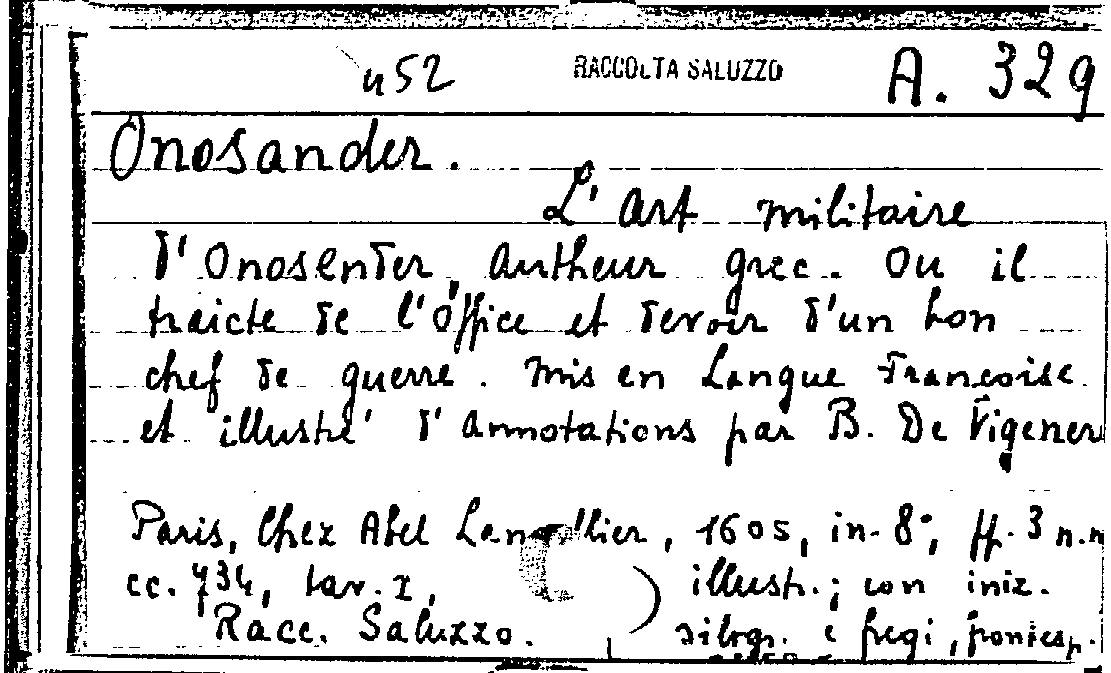 452 RACCOLTA SALUZZO A. 329
Onosander.
L'Art militaire
d'Onosender, Autheur grec. Ou il
traicte de l'Office et devoir d'un bon
chef de guerre. Mis en Langue Francoise
et illustré d'Annotations par B. De Vigener
Paris, Chez Abel Langellier, 1605, in-8°, ff. 3 n.n
cc. 734, tav. I, illustr.; con iniz.
Racc. Saluzzo. silogr. e fregi, frontesp.